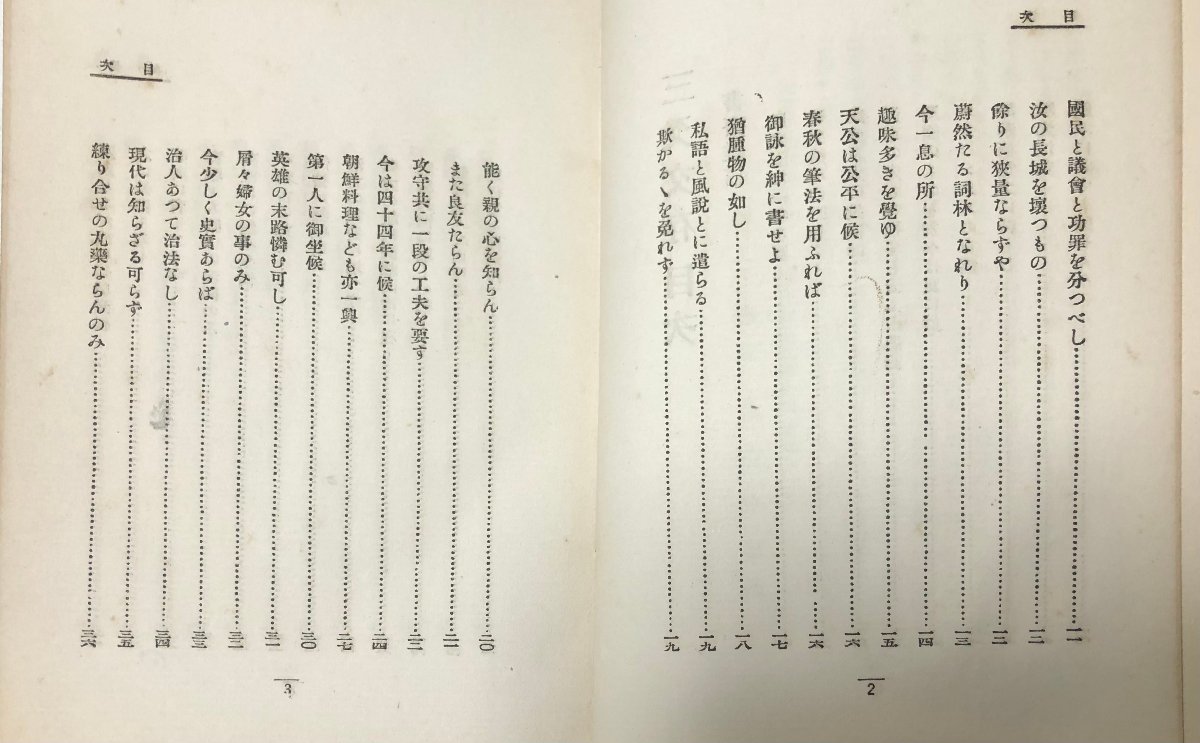 目次
國民と議會と功罪を分つべし……一一
汝の長城を壞つもの……一二
餘りに狹量ならずや……一二
蔚然たる詞林となれり……一三
今一息の所……一四
趣味多きを覺ゆ……一五
天公は公平に候……一六
春秋の筆法を用ふれば……一六
御詠を紳に書せよ……一七
猶腫物の如し……一八
私語と風說とに遣らる……一九
欺かるゝを免れず……一九
2
目次
能く親の心を知らん……二〇
また良友たらん……二一
攻守共に一段の工夫を要す……二二
今は四十四年に候……二四
朝鮮料理なども亦一興……二七
第一人に御坐候……三〇
英雄の末路憐む可し……三一
屑々婦女の事のみ……三二
今少しく史實あらば……三三
治人あつて治法なし……三四
現代は知らざる可らず……三五
練り合せの丸藥ならんのみ……三六
3